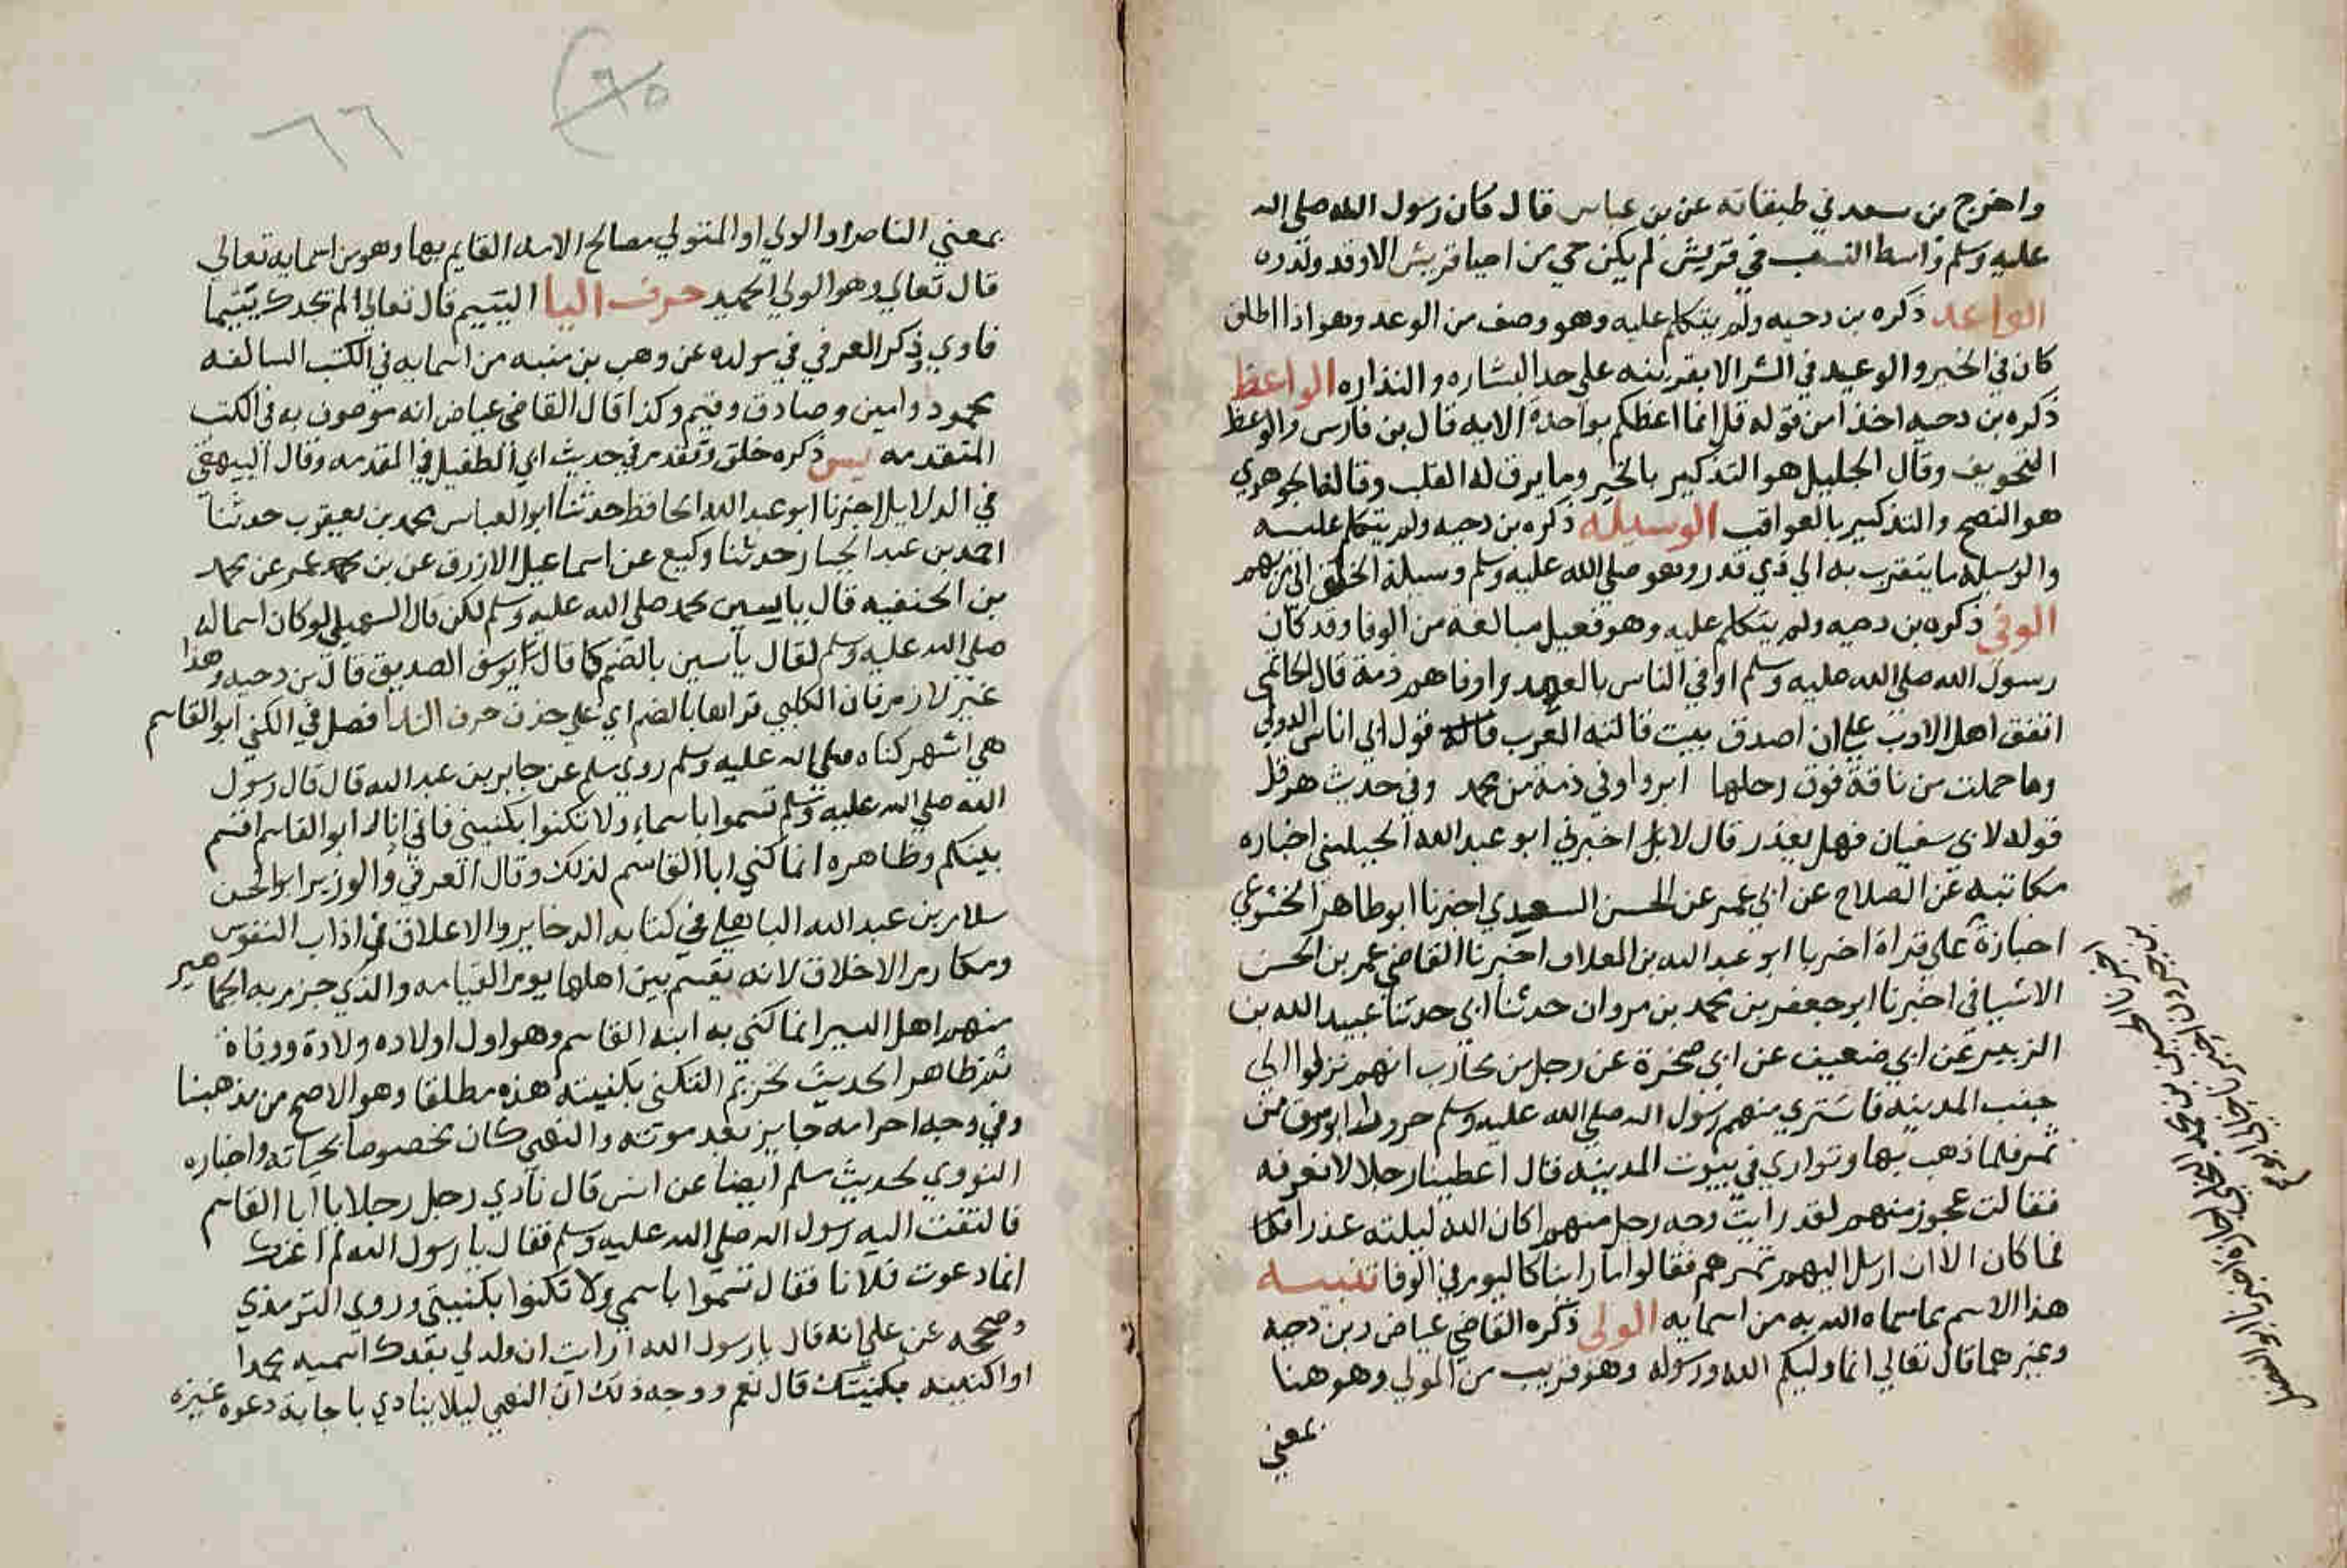 واخرج بن سعد في طبقاته عن بن عباس قال كان رسول الله صلي الله
عليه وسلم واسط النسب في قريش لم يكن حي من احيا قريش الا وقد ولدوه
الواعد ذكره بن دحيه ولم يتكلم عليه وهو وصف من الوعد وهو اذا اطلق
كان في الخير والوعيد في الشر الا بقرينه علي حد البشاره والنذاره الواعظ
ذكره بن دحيه اخذا من قوله قل انما اعظكم بواحدة الايه قال بن فارس والوعظ
التخويف وقال الجليل هو التذكير بالخير وما يرق له القلب وقال الجوهري
هو النصح والتذكير بالعواقب الوسيله ذكره بن دحيه ولم يتكلم عليه
والوسيله ما يتقرب به الي ذي قدر وهو صلي الله عليه وسلم وسيلة الخلق الي ربهم
الوفي ذكره بن دحيه ولم يتكلم عليه وهو فعيل مبالغه من الوفا وقد كان
رسول الله صلي الله عليه وسلم اوفي الناس بالعهد واوفاهم ذمة قال الحاتمي
اتفق اهل الادب علي ان اصدق بيت قالته العرب قول ابي اناس الدولي
وما حملت من ناقة فوق رحلها ابر واوفي ذمة من محمد وفي حديث هرقل
قوله لابي سفيان فهل يغدر قال لا بل اخبرني ابو عبد الله الحبيلني اخباره
مكاتبه عن الصلاح عن ابي عمر عن الحسن السعيدي اخبرنا ابو طاهر الخشوعي
اجازة علي قراة اخبرنا ابو عبد الله بن العلاف اخبرنا القاضي عمر بن الحسن
الاشيافي اخبرنا ابو جعفر بن محمد بن مروان حدثنا ابي حدثنا عبيد الله بن
الزبير عن ابي ضعيف عن ابي صخرة عن رجل من محارب انهم نزلوا الي
جنب المدينه فاشتري منهم رسول الله صلي الله عليه وسلم
تمر فلما ذهب بها وتواري في بيوت المدينه قال اعطينا رجلا لا نعرفه
فقالت عجوز منهم لقد رايت وجه رجل منهم اكان الله ليلته
فما كان الا ان ارسل اليهم تمرهم فقالوا ما راينا كاليوم في الوفا تنبيه
هذا الاسم مما سماه الله به من اسمايه الولي ذكره القاضي عياض وبن دحيه
وغيرهما قال تعالي انما وليكم الله ورسوله وهو قريب من المولي وهو هنا
بمعني
بمعني الناصر او الولي او المتولي مصالح الامه القايم بها وهو من اسمايه تعالي
قال تعالي وهو الولي الحميد حرف اليا اليتيم قال تعالي الم يجدك يتيما
فاوي ذكر العرفي في مولده عن وهب بن منبه من اسمايه في الكتب السالفه
محمود وامين وصادق وقيم وكذا قال القاضي عياض انه موصوف به في الكتب
المتقدمه يس ذكره خلق وتقدم في حديث ابي الطفيل في المقدمه وقال البيهقي
في الدلايل اخبرنا ابو عبد الله الحافظ حدثنا ابو العباس محمد بن يعقوب حدثنا
احمد بن عبد الجبار حدثنا وكيع عن اسماعيل الازرق عن بن عمر عن محمد
بن الحنفيه قال ياسين محمد صلي الله عليه وسلم لكن قال السهيلي لو كان اسما له
صلي الله عليه وسلم لقال ياسين بالضم كما قال يوسف الصديق قال بن دحيه وهذا
غير لازم فان الكلبي قراها بالضم اي علي حذف حرف الندا فصل في الكني ابو القاسم
هي اشهر كناه صلي الله عليه وسلم روي مسلم عن جابر بن عبد الله قال قال رسول
الله صلي الله عليه وسلم تسموا باسماء ولا تكنوا بكنيتي فاني انا ابو القاسم اقسم
بينكم وظاهره انما كني ابا القاسم لذلك وقال العرفي والوزير ابو الحسن
سلار بن عبد الله الباهلي في كتابه الدخاير والاعلاق في اداب النفوس
ومكارم الاخلاق لانه يقسم بين اهلها يوم القيامه والذي جزم به الجماهير
منهم اهل السير انما كني به ابنه القاسم وهو اول اولاده ولادة ووفاة
ثم ظاهر الحديث تحريم التكني بكنيته هذه مطلقا وهو الاصح من مذهبنا
وفي وجه احرامه جايز بعد موته والنهي كان مخصوصا بحياته واختاره
النووي لحديث مسلم ايضا عن انس قال نادي رجل رجلا يا ابا القاسم
فالتفت اليه رسول الله صلي الله عليه وسلم فقال يا رسول الله لم اعنك
انما دعوت فلانا فقال تسموا باسمي ولا تكنوا بكنيتي وروي الترمذي
وصححه عن علي انه قال يا رسول الله ارايت ان ولد لي بعدك اسميه محمدا
او اكنيه بكنيتك قال نعم ووجه ذلك ان النهي ليلا ينادي باجابة دعوه غيره
٦٦